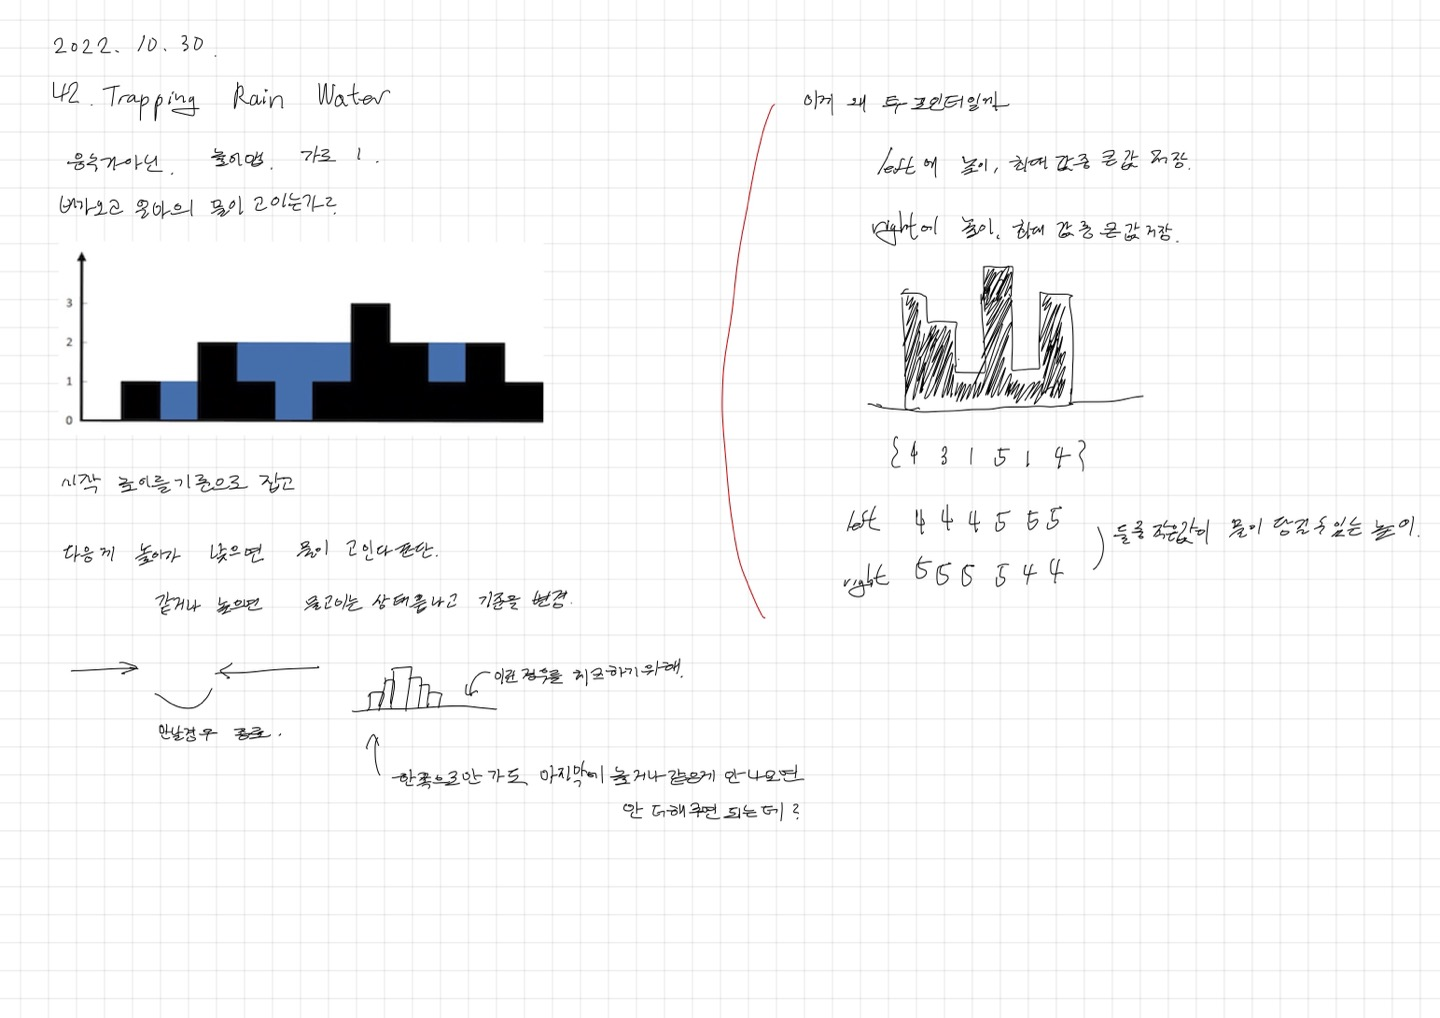 2022. 10. 30.
42. Trapping Rain Water
음수가아닌. 높이맵. 가로 1.
비가오고 얼마의 물이 고이는가?
3
2
1
0
시작 높이를 기준으로 잡고
다음게 높이가 낮으면 물이 고인다 판단.
같거나 높으면 물고이는 상태끝나고 기준을 변경.
만날경우 종료.
이런 경우를 체크하기위해.
한쪽으로만 가도 마지막에 높거나 같은게 안나오면
안 더해주면 되는데?
이게 왜 투포인터일까
left에 높이, 최대 값중 큰값 저장.
right에 높이, 최대 값중 큰값저장.
{4 3 1 5 1 4}
left 4 4 4 5 5 5
right 5 5 5 5 4 4
둘중 작은값이 물이 담길수있는 높이.